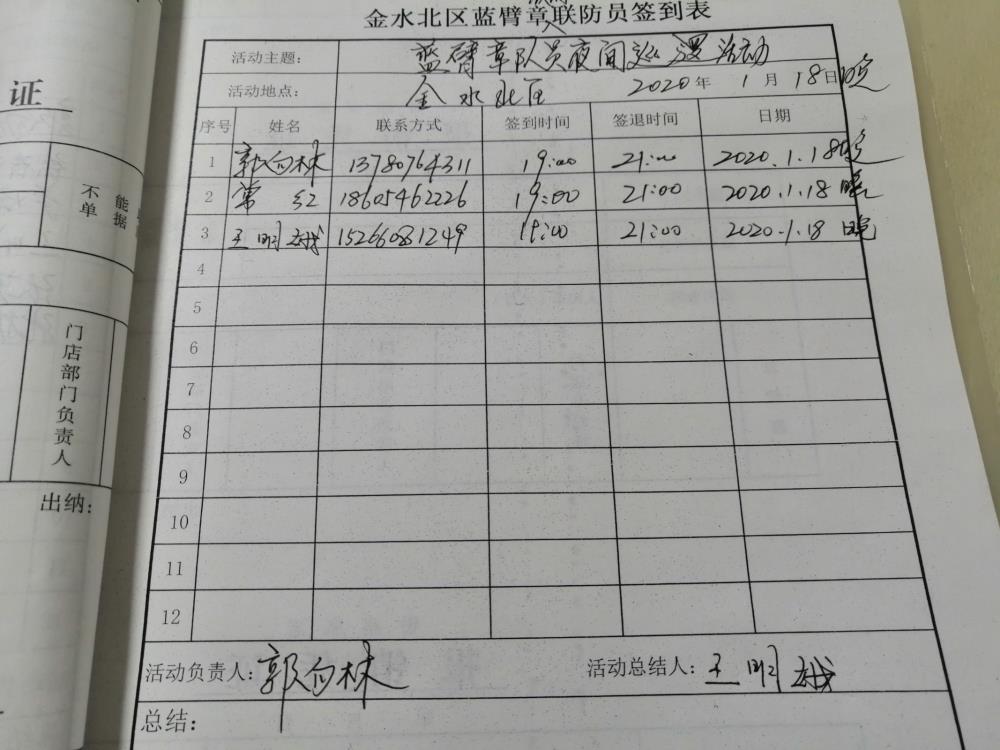 金水北区蓝臂章联防员签到表
活动主题： 蓝臂章队员夜间巡逻活动
活动地点： 金水北区 2020年1月18日晚
序号 姓名 联系方式 签到时间 签退时间 日期
1 郭向林 13780764311 19:00 21:00 2020.1.18晚
2 常红 18605462226 19:00 21:00 2020.1.18 晚
3 王明 15266081249 19:00 21:00 2020.1.18 晚
4
5
6
7
8
9
10
11
12
活动负责人：郭向林 活动总结人：王明
总结：
证
不单
能据
门店部门负责人
出纳：